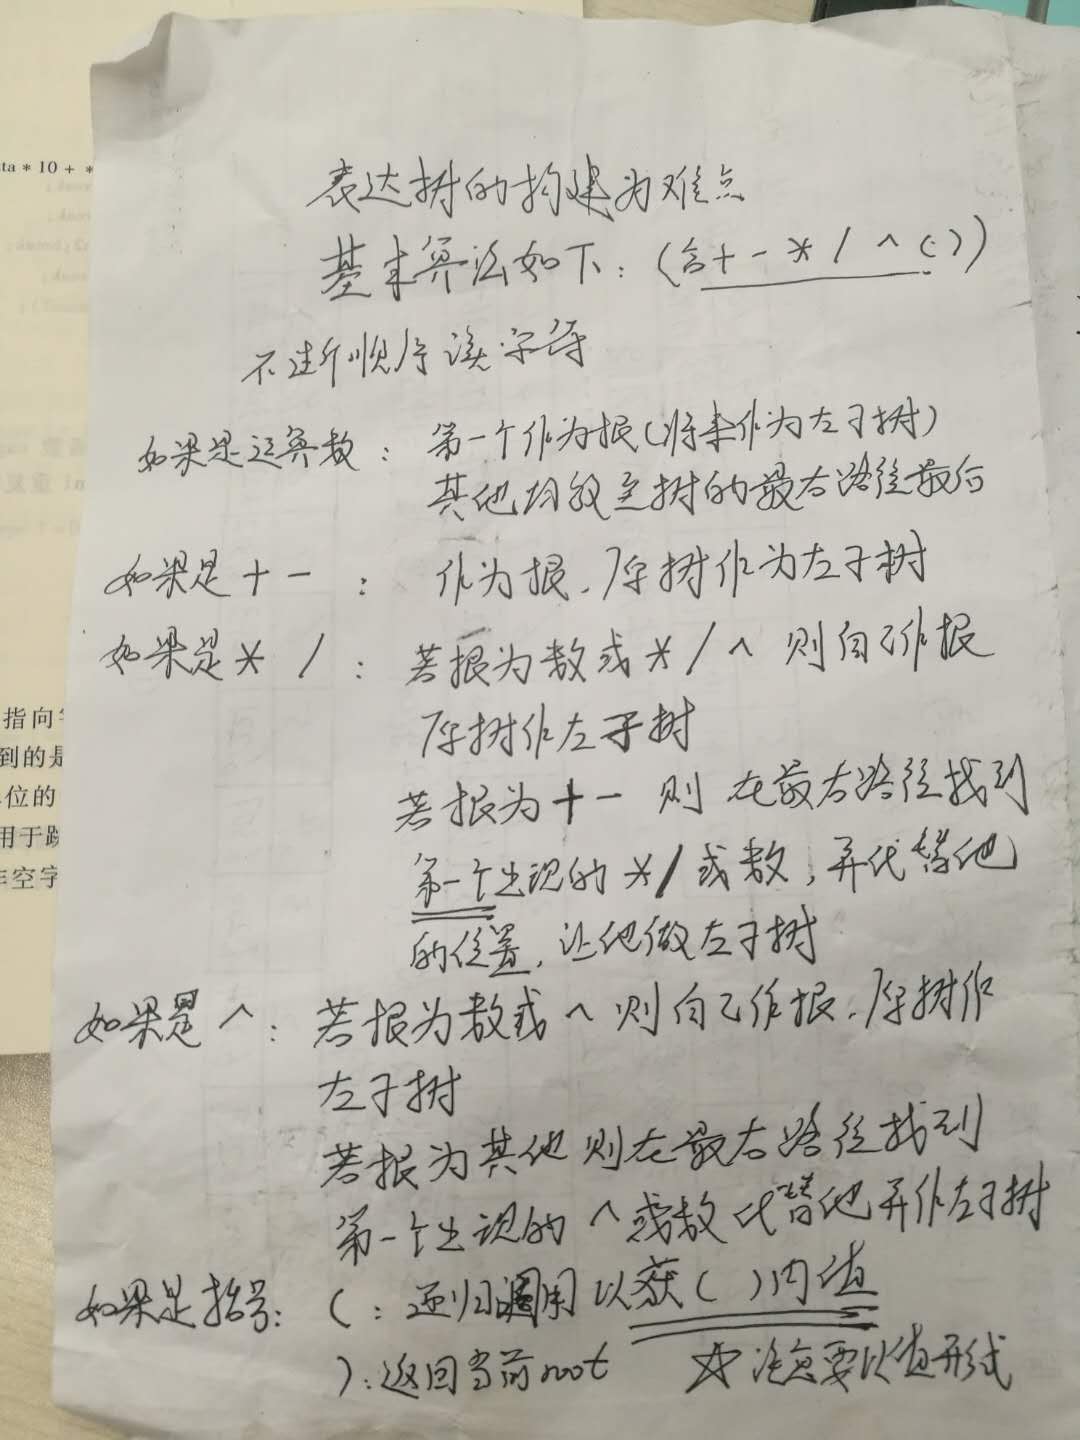 表达树的构建为难点
基本算法如下：(含+ - * / ^ ( ))
不断顺序读字符
如果是运算数： 第一个作为根(将来作为左子树)
其他均放至树的最右路径最后
如果是 + - ： 作为根、原树作为左子树
如果是 * / ： 若根为数或 * / ^ 则自己作根
原树作左子树
若根为 + - 则 在最右路径找到
第一个出现的 * / 或数，并代替他
的位置，让他做左子树
如果是 ^ ： 若根为数或 ^ 则自己作根、原树作
左子树
若根为其他则在最右路径找到
第一个出现的 ^ 或数 代替他并作左子树
如果是括号： ( ：递归调用以获( )内值
)：返回当前root ☆ 注意要以值形式
ta * 10 + *
指向
到的是
位的
用于跳
空字